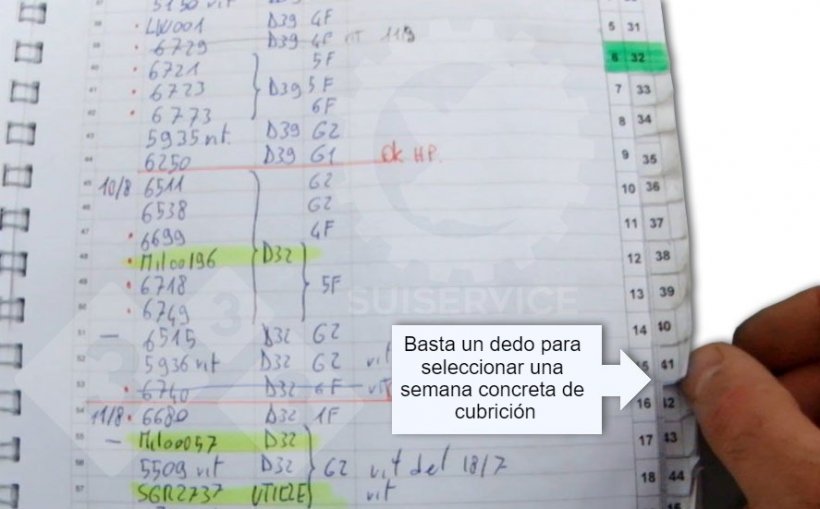 5150 vit
LW001 D39 4F
6729 D39 4F vit 11/9
6721 5F
6723 D39 5F
6773 6F
5935 vit. D39 G2
44 6250 D39 G1 OK HP.
45 10/8 6511 G2
6538 G2
47 6699 4F
48 Miloo196 D32
6718 5F
6749
51 — 6515 D32 G2
52 5936 vit D32 G2 vit
53 6740 D32 6F
54 11/8 6680 D32 1F
55 — Miloo057 D32
5509 vit D32 G2 vit del 18/7
57 SGR2737 UTILE vit
5 31
6 32
7 33
8 34
9 35
10 36
11 37
12 38
13 39
14 40
41
16 42
17 43
18 44
333
SUISERVICE
Basta un dedo para
seleccionar una
semana concreta de
cubrición